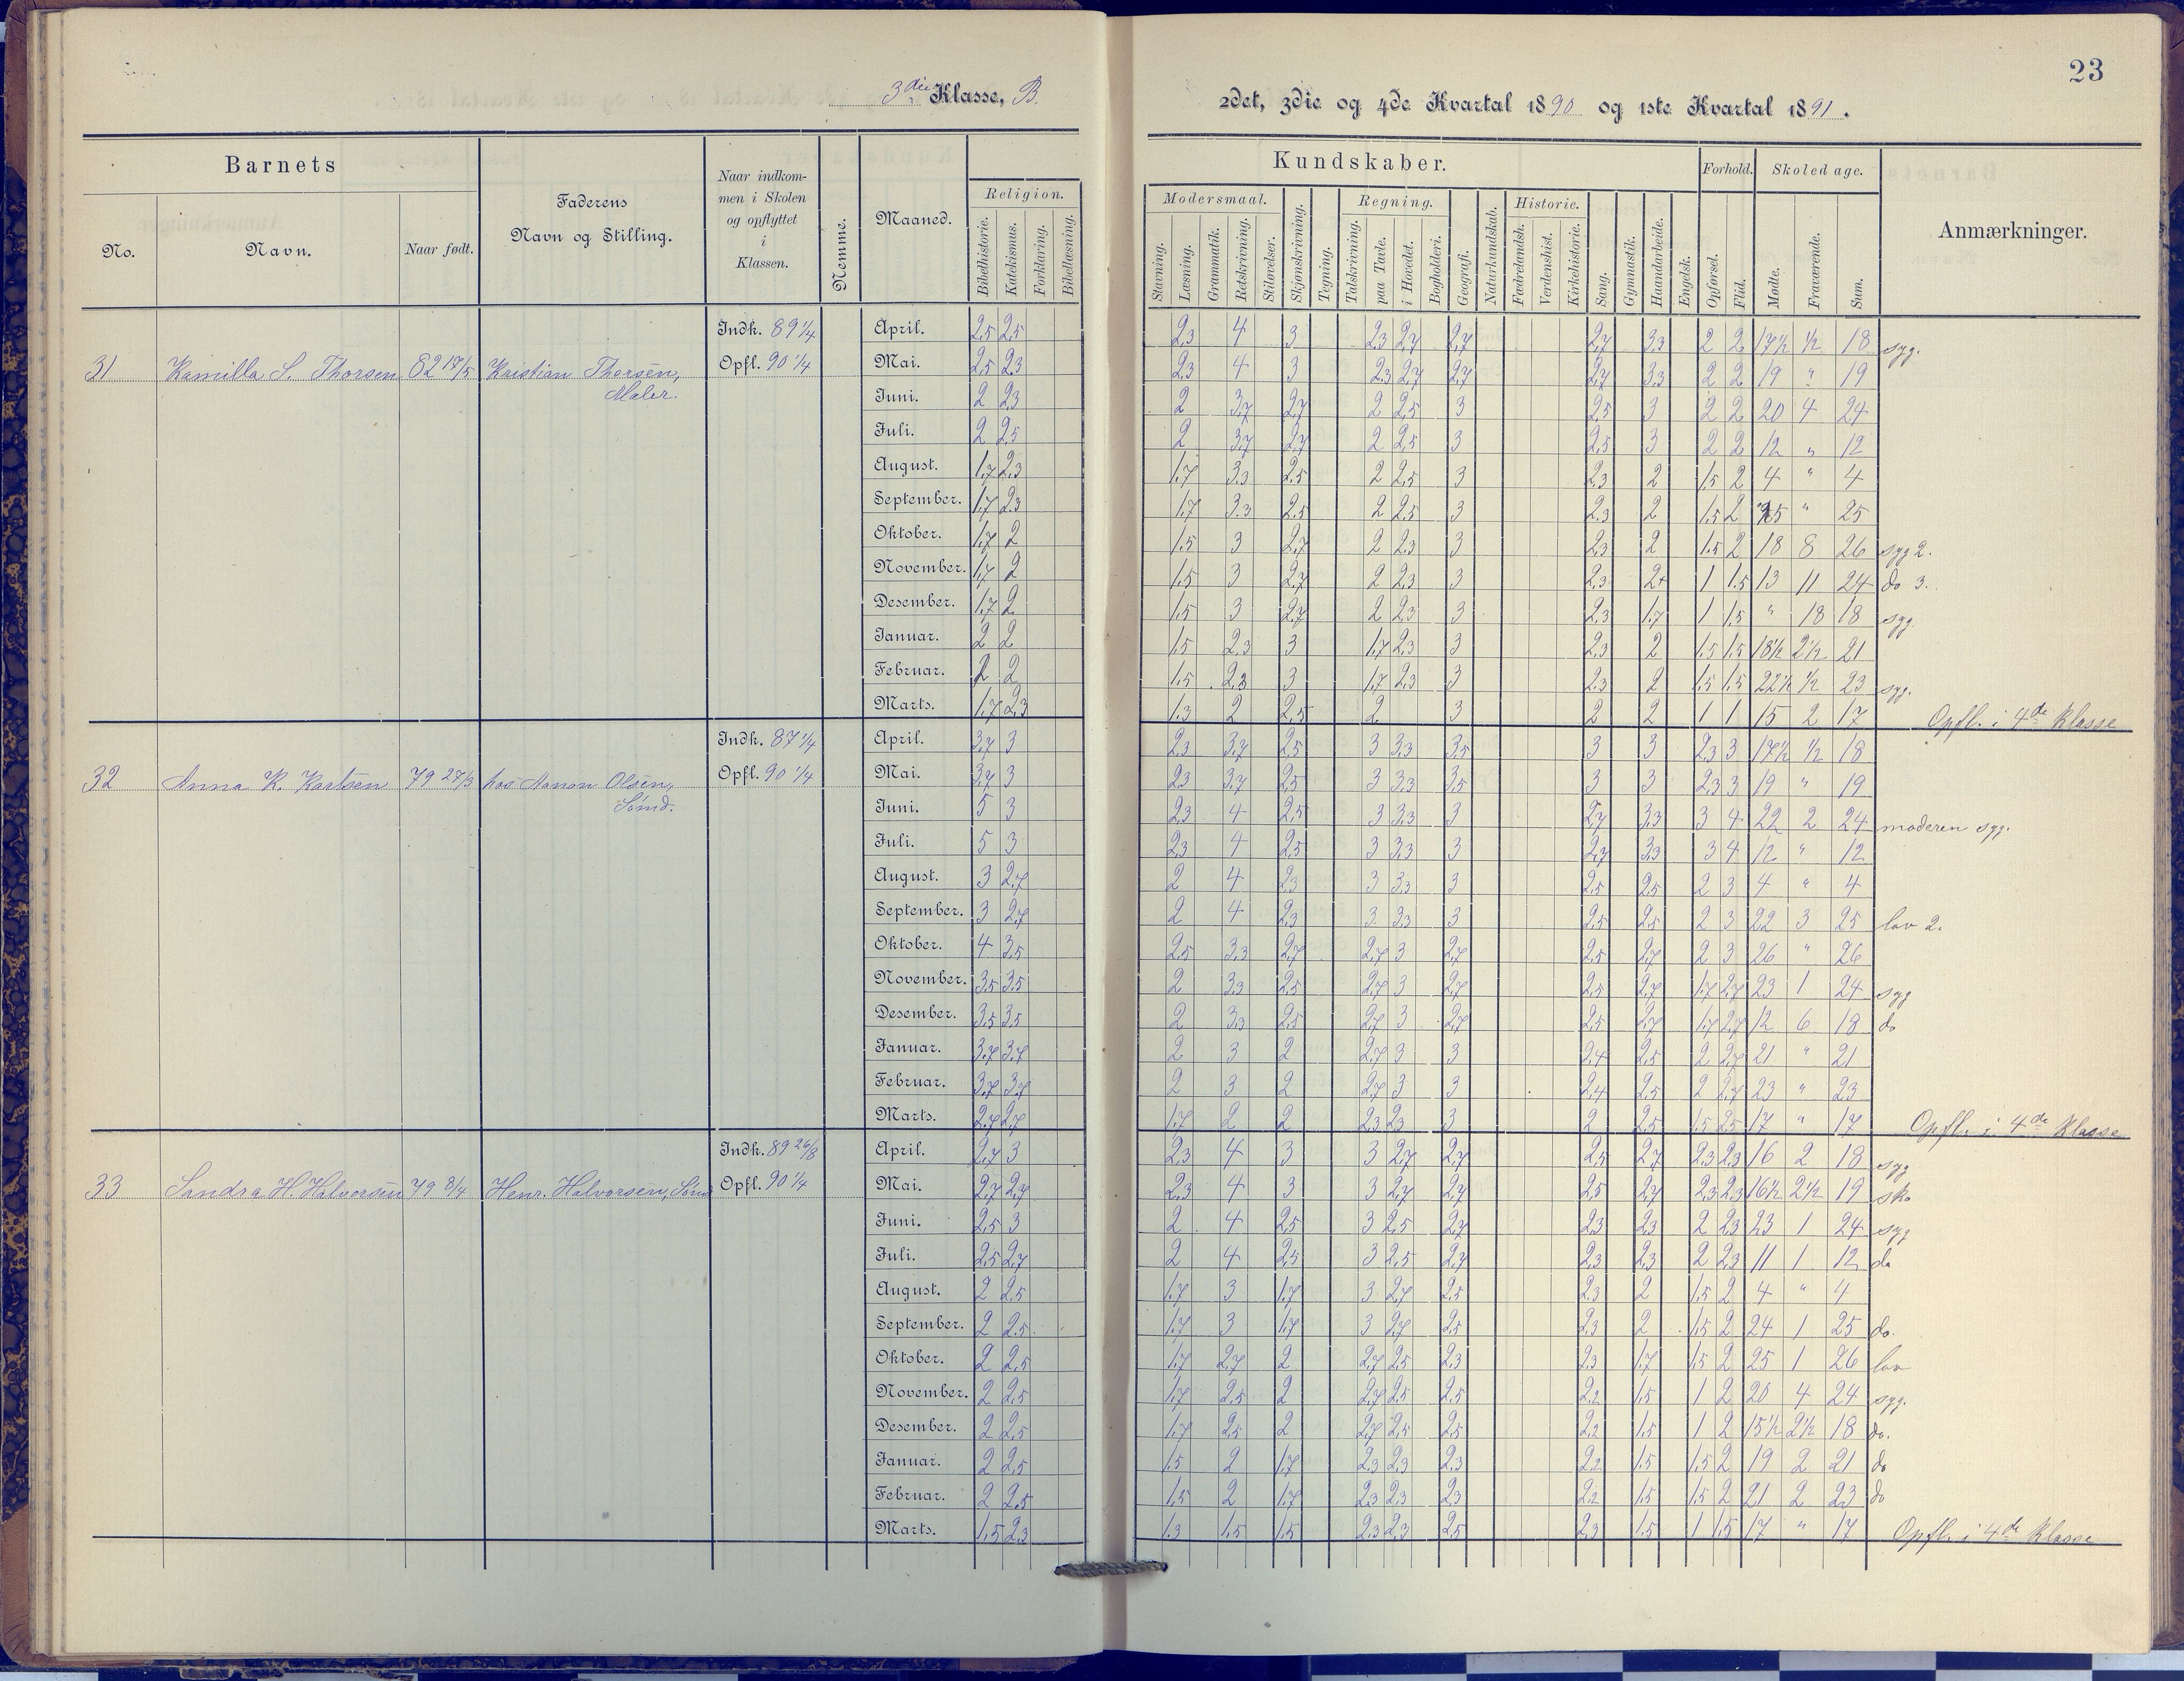 23
3die Klasse, B.
2det, 3die og 4de Kvartal 1890 og 1ste Kvartal 1891.
Barnets
No.
Navn.
Naar født.
Faderens
Navn og Stilling.
Naar indkom-
men i Skolen
og opflyttet
i
Klassen.
Nemme.
Maaned.
Religion.
Bibelhistorie.
Katekismus.
Forklaring.
Bibellæsning.
Kundskaber.
Modersmaal.
Stavning.
Læsning.
Grammatik.
Retskrivning.
Stiløvelser.
Skjønskrivning.
Tegning.
Regning.
Talskrivning.
paa Tavle.
i Hovedet.
Bogholderi.
Geografi.
Naturkundskab.
Historie.
Fædrelandsh.
Verdenshist.
Kirkehistorie.
Sang.
Gymnastik.
Haandarbeide.
Engelsk.
Forhold.
Opførsel.
Flid.
Skoledage.
Mødte.
Fraværende.
Sum.
Anmærkninger.
31 Kamilla S. Thorsen 82 17/5 Kristian Thorsen, Maler.
Indk. 89 1/4
Opfl. 90 1/4
April. 2,5 2,5 2,3 4 3 2,3 2,7 2,7 2,7 3,3 2 2 17½ ½ 18 syg.
Mai. 2,5 2,3 2,3 4 3 2,3 2,7 2,7 2,7 3,3 2 2 19 " 19
Juni. 2 2,3 2 3,7 2,7 2 2,5 3 2,5 3 2 2 20 4 24
Juli. 2 2,5 2 3,7 2,7 2 2,5 3 2,5 3 2 2 12 " 12
August. 1,7 2,3 1,7 3,3 2,5 2 2,5 3 2,3 2 1,5 2 4 " 4
September. 1,7 2,3 1,7 3,3 2,5 2 2,5 3 2,3 2 1,5 2 25 " 25
Oktober. 1,7 2 1,5 3 2,7 2 2,3 3 2,3 2 1,5 2 18 8 26 syg 2.
November. 1,7 2 1,5 3 2,7 2 2,3 3 2,3 2 1 1,5 13 11 24 do 3.
Desember. 1,7 2 1,5 3 2,7 2 2,3 3 2,3 1,7 1 1,5 " 18 18 syg.
Januar. 2 2 1,5 2,3 3 1,7 2,3 3 2,3 2 1,5 1,5 18½ 2½ 21
Februar. 2 2 1,5 2,3 3 1,7 2,3 3 2,3 2 1,5 1,5 22½ ½ 23 syg.
Marts. 1,7 2,3 1,3 2 2,5 2 3 2 2 1 1 15 2 17 Opfl. i 4de Klasse
32 Anna K. Karlsen 79 27/3 hos Aanon Olsen, Sømd.
Indk. 87 1/4
Opfl. 90 1/4
April. 3,7 3 2,3 3,7 2,5 3 3,3 3,5 3 3 2,3 3 17½ ½ 18
Mai. 3,7 3 2,3 3,7 2,5 3 3,3 3,5 3 3 2,3 3 19 " 19
Juni. 5 3 2,3 4 2,5 3 3,3 3 2,7 3,3 3 4 22 2 24 moderen syg.
Juli. 5 3 2,3 4 2,5 3 3,3 3 2,7 3,3 3 4 12 " 12
August. 3 2,7 2 4 2,3 3 3,3 3 2,5 2,5 2 3 4 " 4
September. 3 2,7 2 4 2,3 3 3,3 3 2,5 2,5 2 3 22 3 25 lov 2.
Oktober. 4 3,5 2,5 3,3 2,7 2,7 3 2,7 2,5 2,7 2 3 26 " 26
November. 3,5 3,5 2 3,3 2,5 2,7 3 2,7 2,5 2,7 1,7 2,7 23 1 24 syg
Desember. 3,5 3,5 2 3,3 2,5 2,7 3 2,7 2,5 2,7 1,7 2,7 12 6 18 do
Januar. 3,7 3,7 2 3 2 2,7 3 3 2,4 2,5 2 2,7 21 " 21
Februar. 3,7 3,7 2 3 2 2,7 3 3 2,4 2,5 2 2,7 23 " 23
Marts. 2,7 2,7 1,7 2 2 2,3 2,3 3 2 2,5 1,5 2,5 17 " 17 Opfl. i 4de Klasse
33 Sandra H. Halvorsen 79 8/4 Henr. Halvorsen, Sømd
Indk. 89 26/8
Opfl. 90 1/4
April. 2,7 3 2,3 4 3 3 2,7 2,7 2,5 2,7 2,3 2,3 16 2 18 syg
Mai. 2,7 2,7 2,3 4 3 3 2,7 2,7 2,5 2,7 2,3 2,3 16½ 2½ 19 sko
Juni. 2,5 3 2 4 2,5 3 2,5 2,7 2,3 2,3 2 2,3 23 1 24 syg
Juli. 2,5 2,7 2 4 2,5 3 2,5 2,7 2,3 2,3 2 2,3 11 1 12 do
August. 2 2,5 1,7 3 1,7 3 2,7 2,5 2,3 2 1,5 2 4 " 4
September. 2 2,5 1,7 3 1,7 3 2,7 2,5 2,3 2 1,5 2 24 1 25 do.
Oktober. 2 2,5 1,7 2,7 2 2,7 2,5 2,3 2,3 1,7 1,5 2 25 1 26 lov
November. 2 2,5 1,7 2,5 2 2,7 2,5 2,5 2,2 1,5 1 2 20 4 24 syg.
Desember. 2 2,5 1,7 2,5 2 2,7 2,5 2,5 2,2 1,5 1 2 15½ 2½ 18 do.
Januar. 2 2,5 1,5 2 1,7 2,3 2,3 2,3 2,2 1,5 1,5 2 19 2 21 do
Februar. 2 2,5 1,5 2 1,7 2,3 2,3 2,3 2,2 1,5 1,5 2 21 2 23 do
Marts. 1,5 2,3 1,3 1,5 1,5 2,3 2,3 2,5 2,3 1,5 1 1,5 17 " 17 Opfl. i 4de Klasse